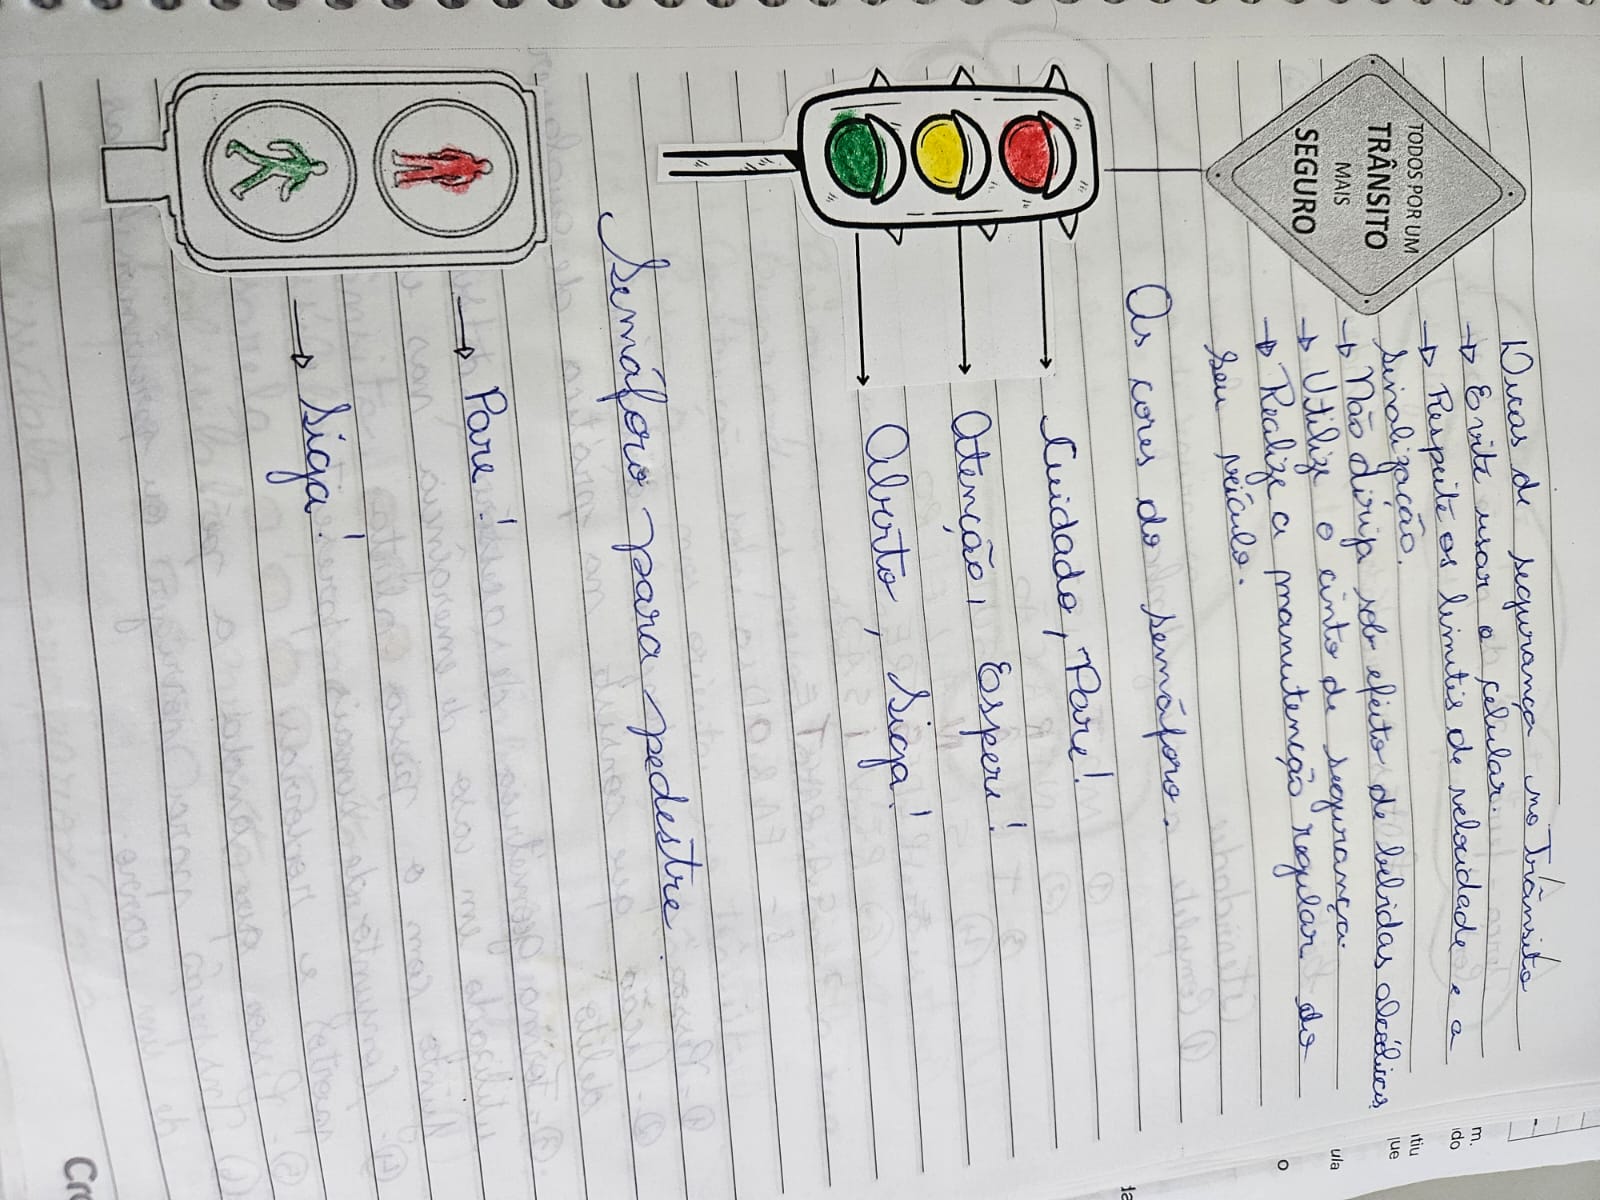 TODOS POR UM
TRÂNSITO
MAIS
SEGURO
Dicas de segurança no Trânsito
→ Evite usar o celular.
→ Respeite os limites de velocidade e a
sinalização.
→ Não dirija sob efeito de bebidas alcoólicas
→ Utilize o cinto de segurança.
→ Realize a manutenção regular do
seu veículo.
As cores do semáforo.
Cuidado, Pare!
Atenção, Espere!
Aberto, Siga!
Semáforo para pedestre.
→ Pare!
→ Siga!